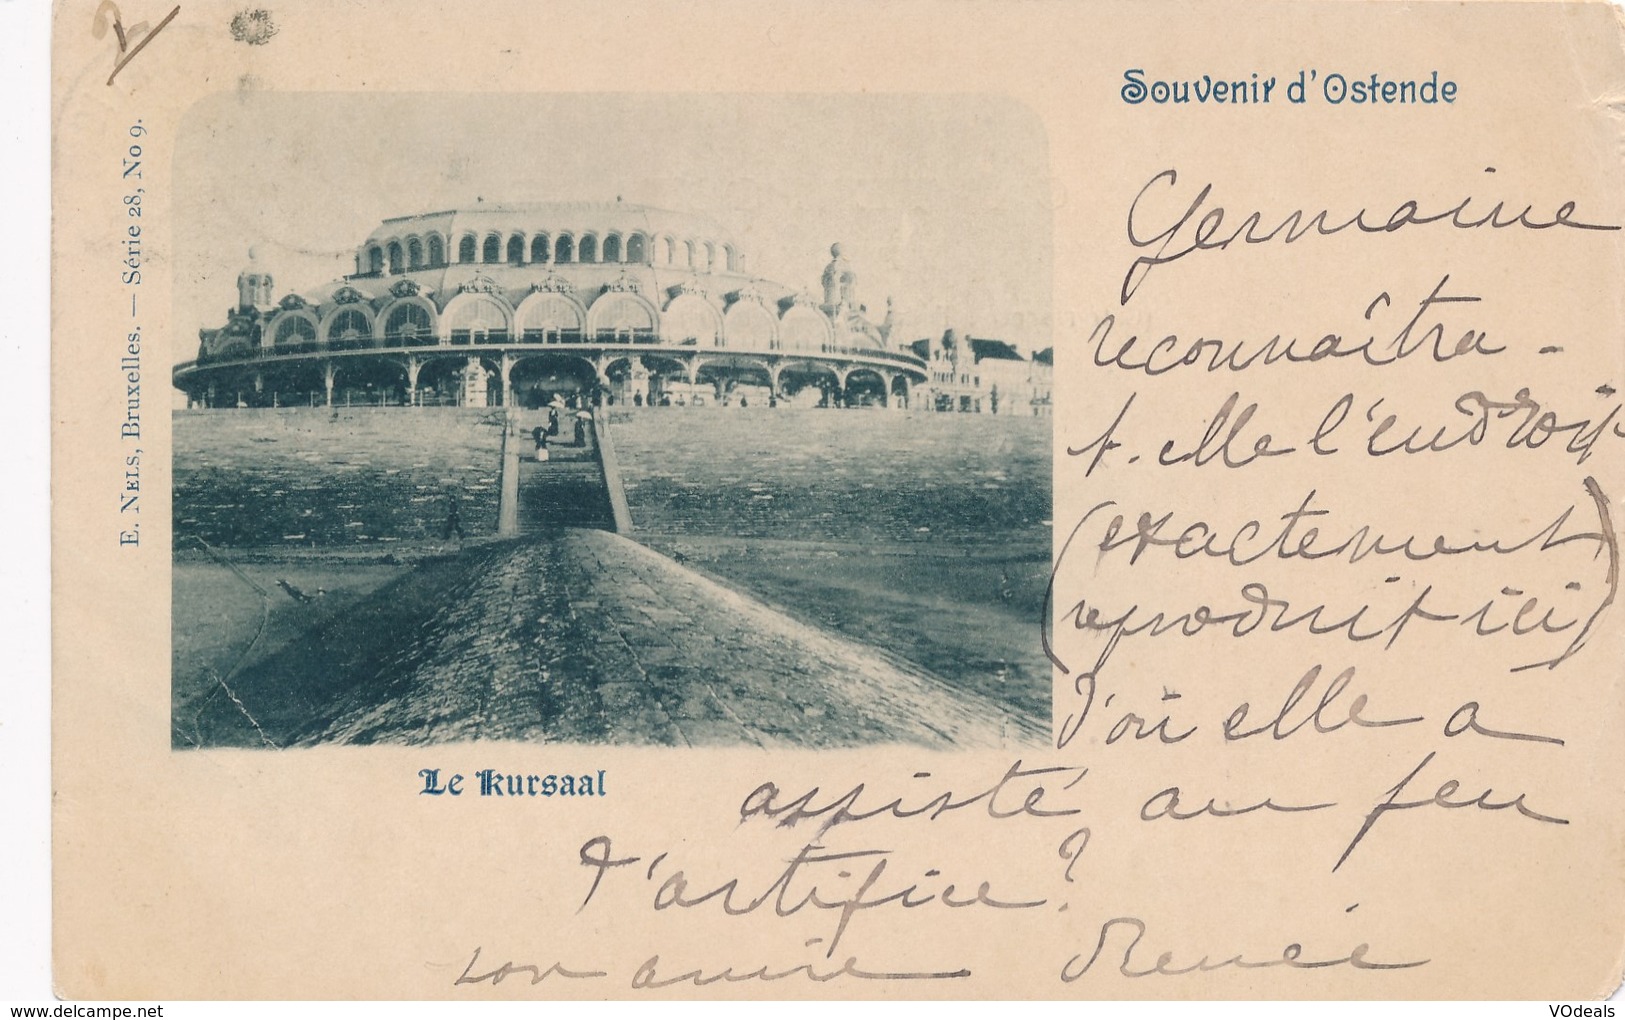 Souvenir d'Ostende
E. NELS, Bruxelles. — Série 28, No 9.
Germaine
reconnaîtra -
t-elle l'endroit
(exactement
reproduit ici)
d'où elle a
assisté au feu
d'artifice?
son amie Renée
Le Kursaal
www.delcampe.net
VOdeals